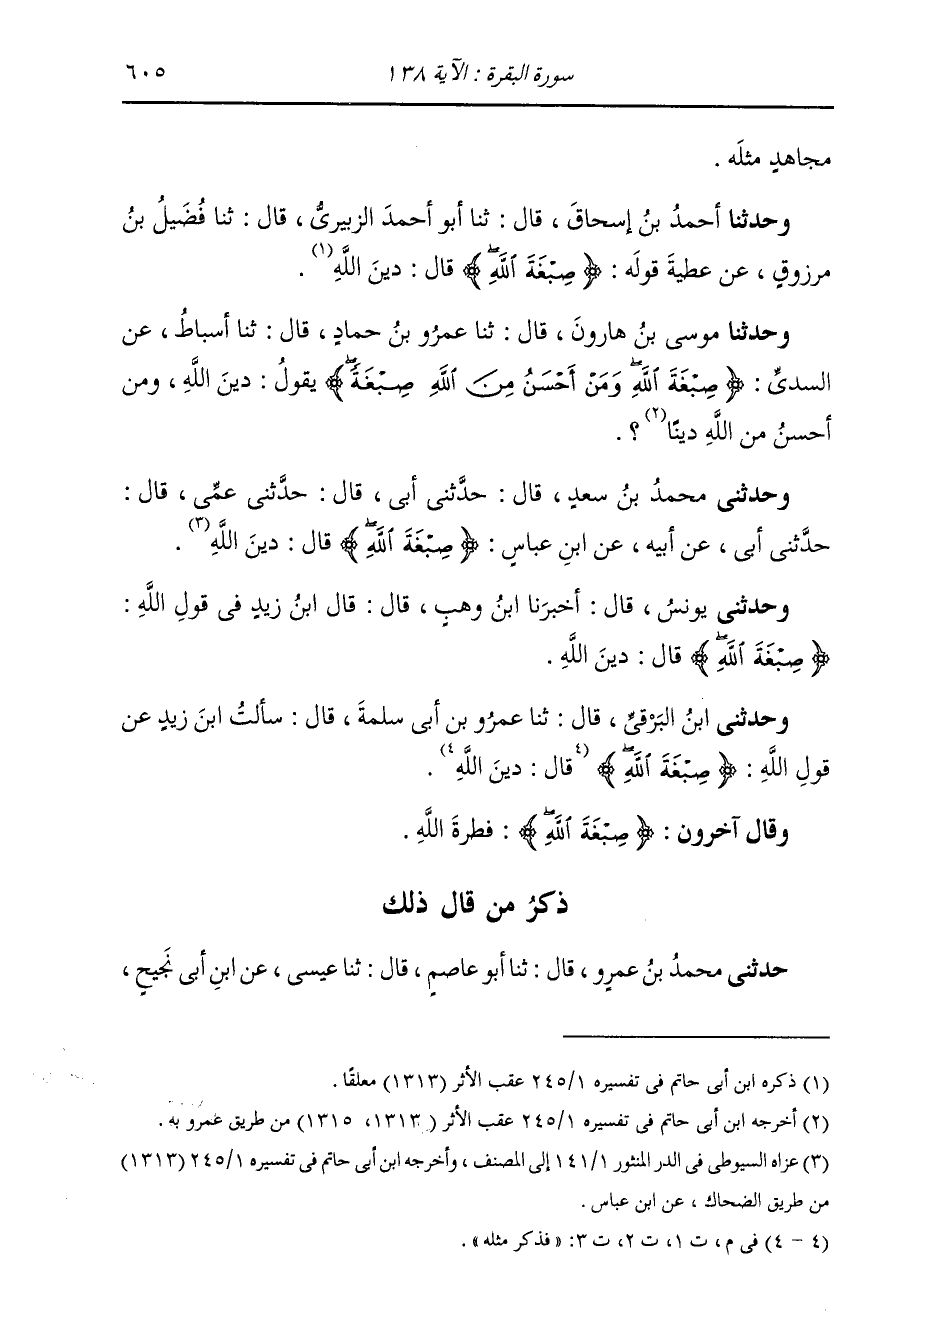 سورة البقرة : الآية ١٣٨ ٦٠٥
مجاهدٍ مثلَه .
وحدثنا أحمدُ بنُ إسحاقَ ، قال : ثنا أبو أحمدَ الزبيرىُّ ، قال : ثنا فُضَيلُ بنُ
مرزوقٍ ، عن عطيةَ قولَه : ﴿ صِبْغَةَ ٱللَّهِۖ ﴾ قال : دينَ اللَّهِ (١) .
وحدثنا موسى بنُ هارونَ ، قال : ثنا عمرُو بنُ حمادٍ ، قال : ثنا أسباطُ ، عن
السدىِّ : ﴿ صِبْغَةَ ٱللَّهِۖ وَمَنْ أَحْسَنُ مِنَ ٱللَّهِ صِبْغَةًۖ ﴾ يقولُ : دينَ اللَّهِ ، ومن
أحسنُ من اللَّهِ دينًا (٢) ؟ .
وحدثنى محمدُ بنُ سعدٍ ، قال : حدَّثنى أبى ، قال : حدَّثنى عمِّى ، قال :
حدَّثنى أبى ، عن أبيه ، عن ابنِ عباسٍ : ﴿ صِبْغَةَ ٱللَّهِۖ ﴾ قال : دينَ اللَّهِ (٣) .
وحدثنى يونسُ ، قال : أخبرَنا ابنُ وهبٍ ، قال : قال ابنُ زيدٍ فى قولِ اللَّهِ :
﴿ صِبْغَةَ ٱللَّهِۖ ﴾ قال : دينَ اللَّهِ .
وحدثنى ابنُ البَرْقىِّ ، قال : ثنا عمرُو بن أبى سلمةَ ، قال : سألتُ ابنَ زيدٍ عن
قولِ اللَّهِ : ﴿ صِبْغَةَ ٱللَّهِۖ ﴾ (٤ قال : دينَ اللَّهِ ٤) .
وقال آخرون : ﴿ صِبْغَةَ ٱللَّهِۖ ﴾ : فطرةَ اللَّهِ .
ذكرُ من قال ذلك
حدثنى محمدُ بنُ عمرٍو ، قال : ثنا أبو عاصمٍ ، قال : ثنا عيسى ، عن ابنِ أبى نَجيحٍ ،
(١) ذكره ابن أبى حاتم فى تفسيره ٢٤٥/١ عقب الأثر (١٣١٣) معلقًا .
(٢) أخرجه ابن أبى حاتم فى تفسيره ٢٤٥/١ عقب الأثر ( ١٣١٣، ١٣١٥) من طريق عمرو به .
(٣) عزاه السيوطى فى الدر المنثور ١٤١/١ إلى المصنف ، وأخرجه ابن أبى حاتم فى تفسيره ٢٤٥/١ (١٣١٣)
من طريق الضحاك ، عن ابن عباس .
(٤ - ٤) فى م ، ت ١، ت ٢، ت ٣: « فذكر مثله » .